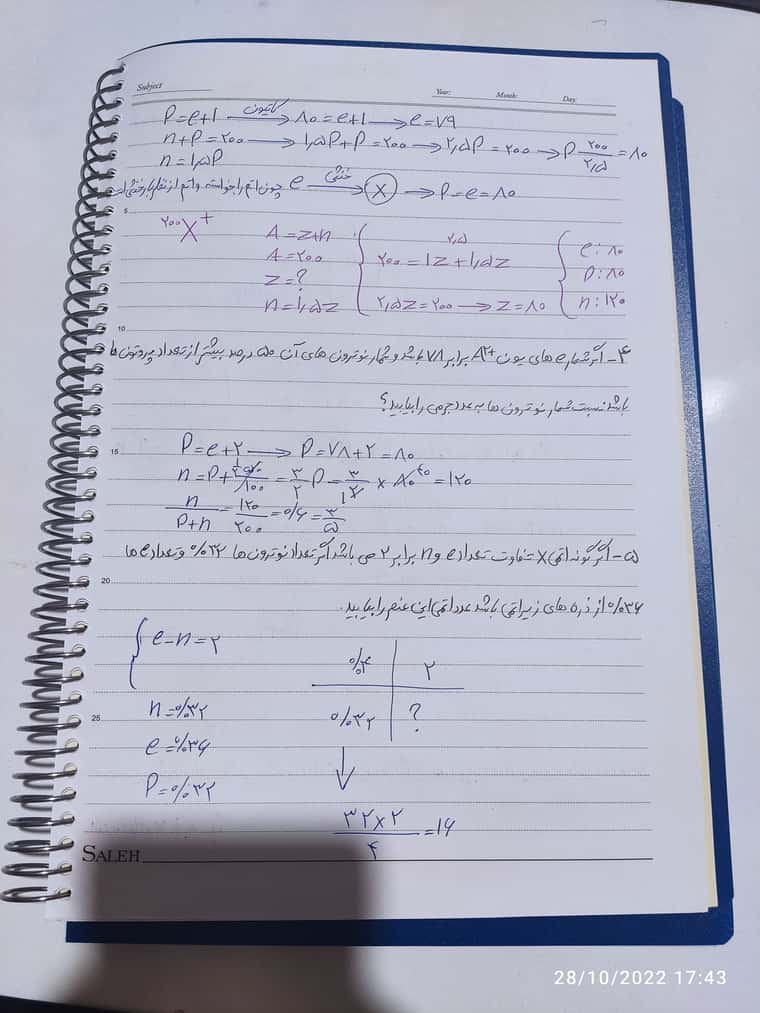 Subject
Year: Month: Day:
P=e+1 کاتیون→ ۸۰=e+1 → e=۷۹
n+P=۲۰۰ → ۱٫۵P+P=۲۰۰ → ۲٫۵P=۲۰۰ → P ۲۰۰/۲٫۵=۸۰
n=۱٫۵P
چون اتم را خواسته و اتم از نظر بار خنثی است e خنثی→ X → P=e=۸۰
5
۲۰۰X+ A=Z+n ۲٫۵ e:۸۰
A=۲۰۰ ۲۰۰=1Z+۱٫۵Z P:۸۰
Z=?
n=۱٫۵Z ۲٫۵Z=۲۰۰ → Z=۸۰ n:۱۲۰
10
۴- اگر شمار e های یون A۲+ برابر ۷۸ باشد و شمار نوترون های آن ۵۰ درصد بیشتر از تعداد پروتون ها
باشد نسبت شمار نوترون ها به عدد جرمی را بیابید؟
P=e+۲ → P=۷۸+۲=۸۰
15
n=P+۵۰/۱۰۰=۳/۲P=۳/۲×۸۰ ۴۰=۱۲۰
n/P+n=۱۲۰/۲۰۰=۰/۶=۳/۵
۵- اگر گونه اتمی X تفاوت تعداد e و n برابر ۲ می باشد اگر تعداد نوترون ها ۳۲% و تعداد e ها
20
۳۶% از ذره های زیراتمی باشد عدد اتمی این عنصر را بیابید.
e-n=۲
%۴ ۲
n=%۳۲ %۳۲ ?
25
e=%۳۶
P=%۳۲
۳۲×۲/۴=۱۶
SALEH
28/10/2022 17:43